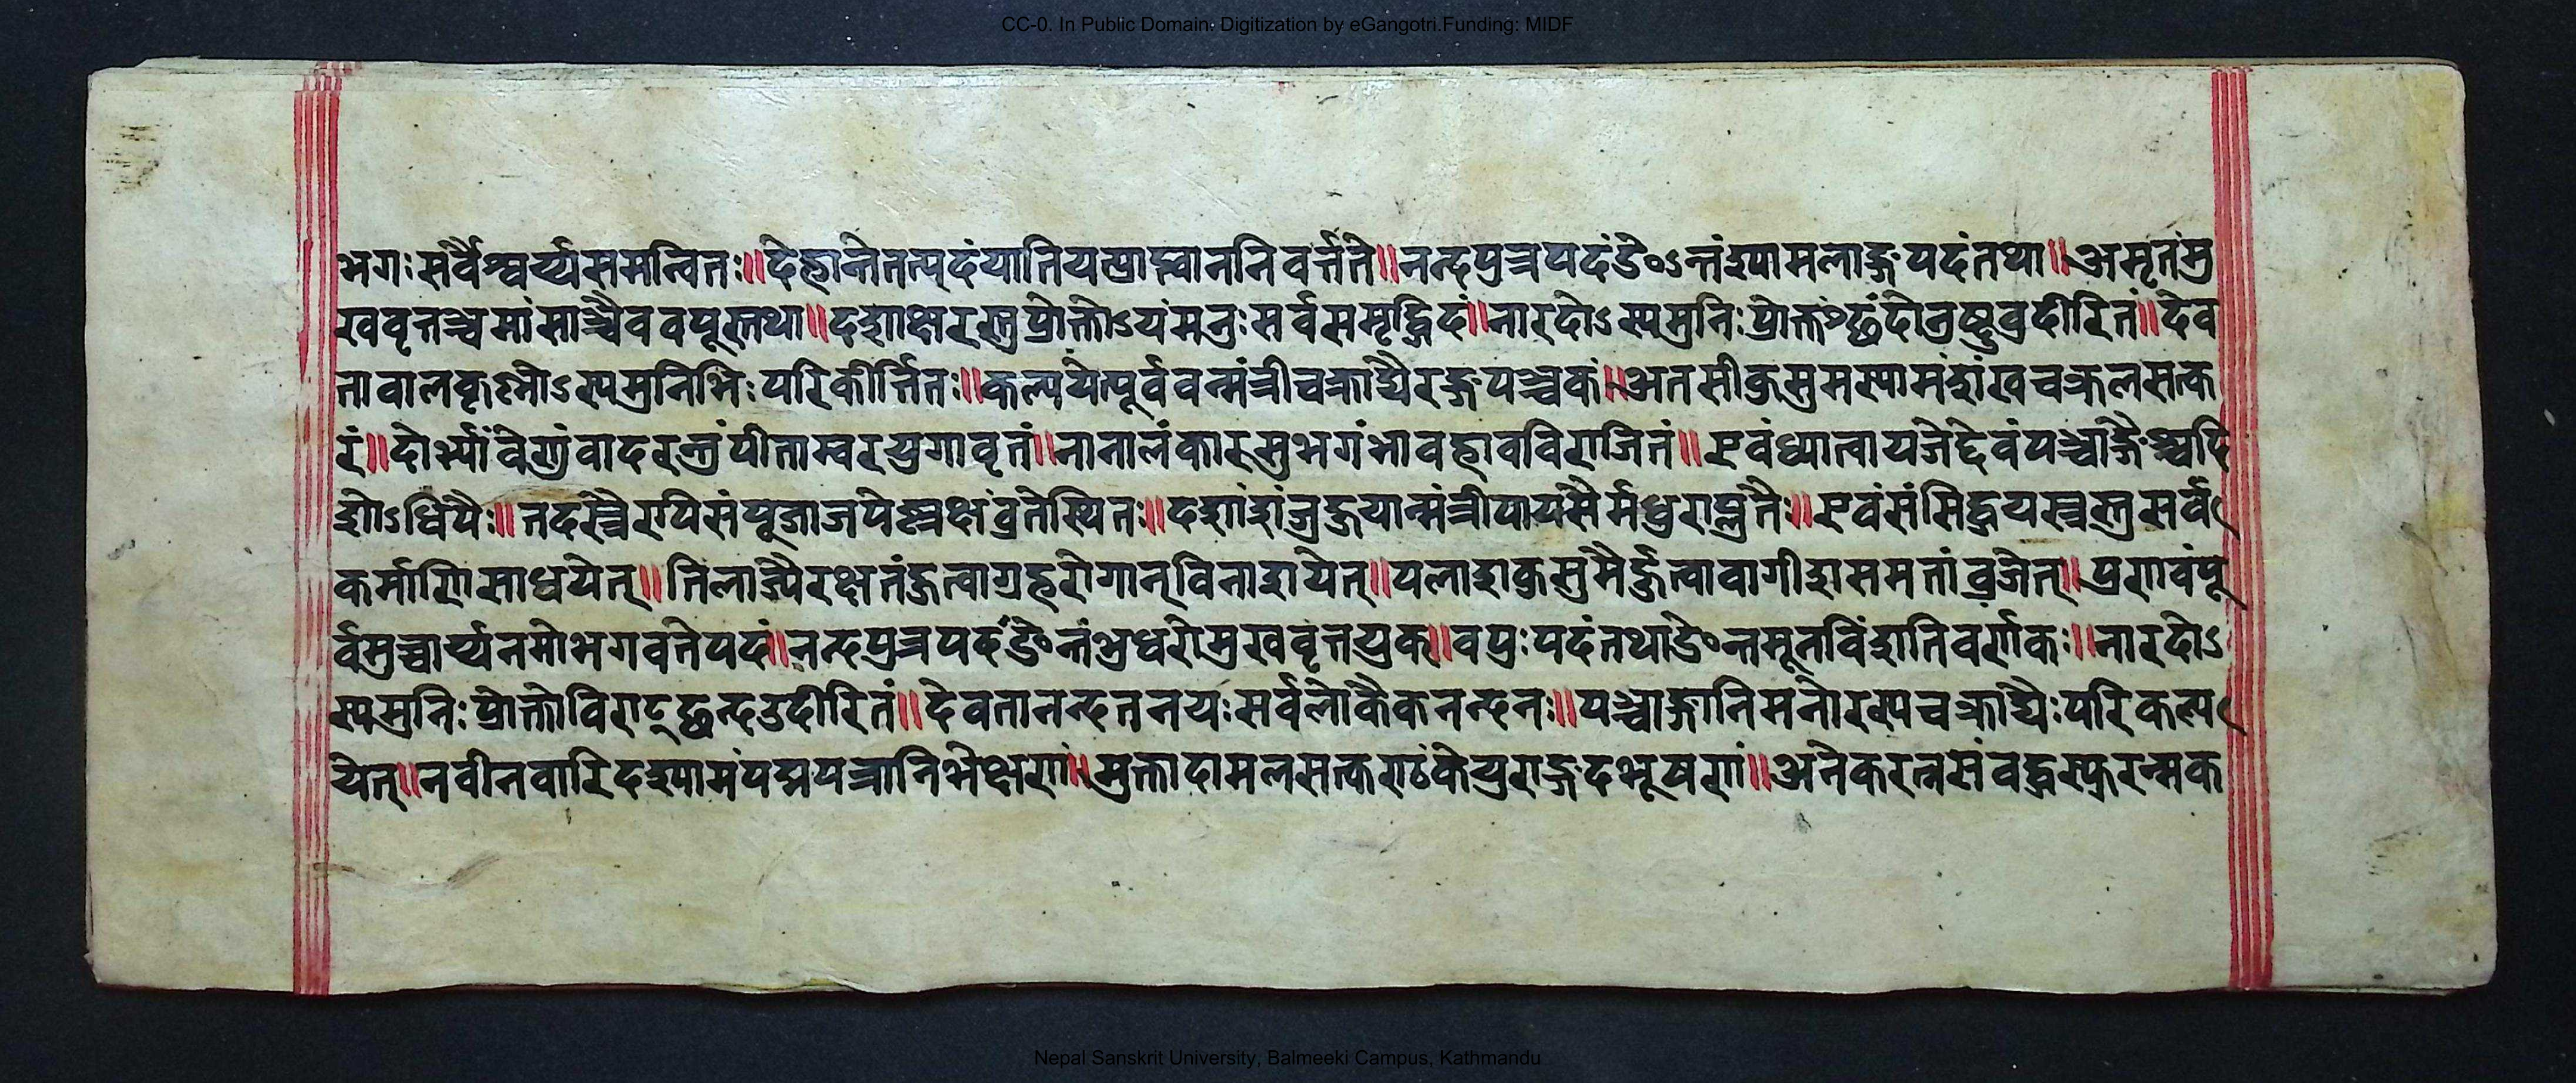 CC-0. In Public Domain. Digitization by eGangotri.Funding: MIDF
भगः सर्वैश्वर्य्यसमन्वितः॥देहान्तेतत्पदंयातियत्प्राप्वाननिवर्त्तते॥नन्दपुत्रपदंङेऽन्तंश्यामलाङ्गपदंतथा॥अमृतंमु
खवृत्तञ्चमांसाञ्चैववपूस्तथा॥दशाक्षरस्तुप्रोक्तोऽयंमनुःसर्वसमृद्धिदं॥नारदोऽस्यमुनिःप्रोक्तश्छंदोनुष्टुवुदीरितं॥देव
तावालकृष्णोऽस्यमुनिभिःपरिकीर्त्तितः॥कल्पयेत्पूर्ववन्मंत्रीचक्राद्यैरङ्गपञ्चकं॥अतसीकुसुमस्यामंशंखचक्रलसत्क
रं॥दोर्भ्यांवेणुंवादरन्त्रंपीताम्वरयुगावृतं॥नानालंकारसुभगंभावहावविराजितं॥एवंध्यात्वायजेद्देवंपञ्चाङ्गैश्चदि
शोऽधिपैः॥तदस्त्रैरपिसंपूजाजपेल्लक्षंव्रतेस्थितः॥दशांशंजुहुयान्मंत्रीपायसैर्मधुराप्लुतैः॥एवंसंसिद्धयस्त्वस्तुसर्व
कर्माणिसाधयेत्॥तिलाज्यैरक्षतंहुत्वाग्रहरोगान्विनाशयेत्॥पलाशकुसुमैर्हुत्वावागीशसमतांव्रजेत्॥प्रणवंपू
र्वमुच्चार्य्यनमोभगवतेपदं॥नन्दपुत्रपदंङेन्तंभुधरोमुखवृत्तयुक॥वपुःपदंतथाङेन्तमूनविंशतिवर्णकः॥नारदोऽ
स्यमुनिःप्रोक्तोविराट्छन्दउदीरितं॥देवतानन्दतनयःसर्वलोकैकनन्दनः॥पञ्चाङ्गानिमनोरस्यचक्राद्यैःपरिकल्प
येत्॥नवीनवारिदश्यामंपद्मपत्रानिभेक्षणं॥मुक्तादामलसत्कण्ठंकेयुराङ्गदभूषणं॥अनेकरत्नसंवद्धस्फुरन्मक
Nepal Sanskrit University, Balmeeki Campus, Kathmandu